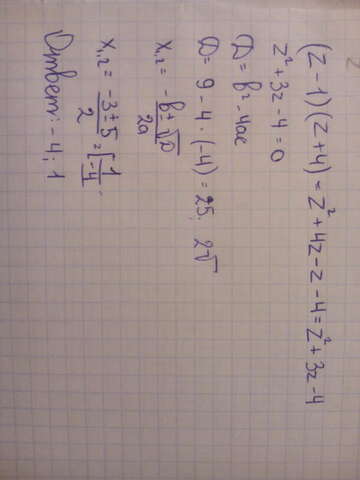 (z-1)(z+4) = z²+4z-z-4 = z²+3z-4
z²+3z-4=0
D = b²-4ac
D = 9-4·(-4) = 25; 2√
x₁,₂ = (-b±√D)/2a
x₁,₂ = (-3±5)/2 = [1 -4
Ответ: -4; 1